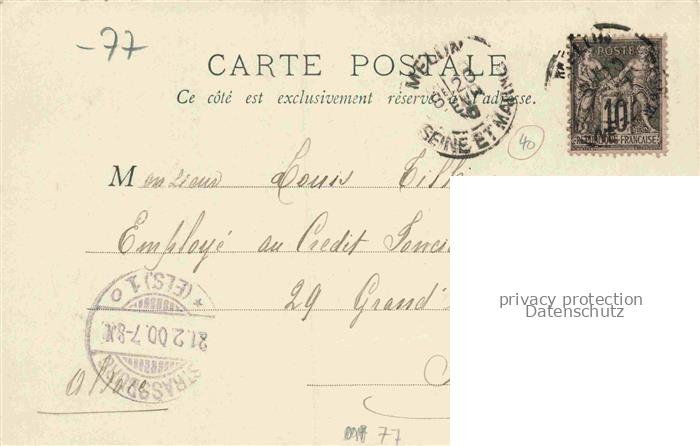 -77
CARTE POSTALE
Ce côté est exclusivement réservé à l'adresse.
MELUN
SEINE ET MARNE
POSTE
10
REPUBLIQUE FRANÇAISE
40
Monsieur Louis
Employé au Credit Foncie
29 Grand'
privacy protection
Datenschutz
STRASSBURG
21.2.00.7-8N.
* (ELS) 1 o
Alsace
77